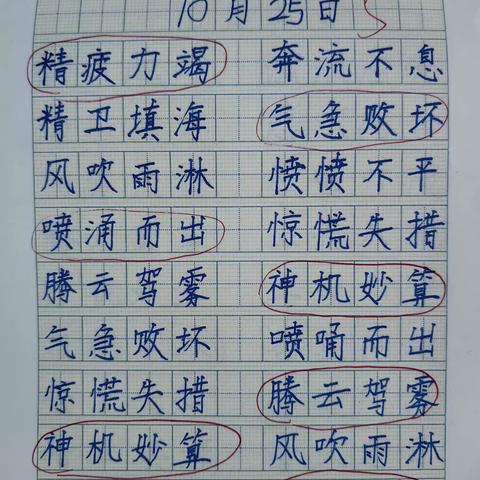 10月25日
精疲力竭 奔流不息
精卫填海 气急败坏
风吹雨淋 愤愤不平
喷涌而出 惊慌失措
腾云驾雾 神机妙算
气急败坏 喷涌而出
惊慌失措 腾云驾雾
神机妙算 风吹雨淋